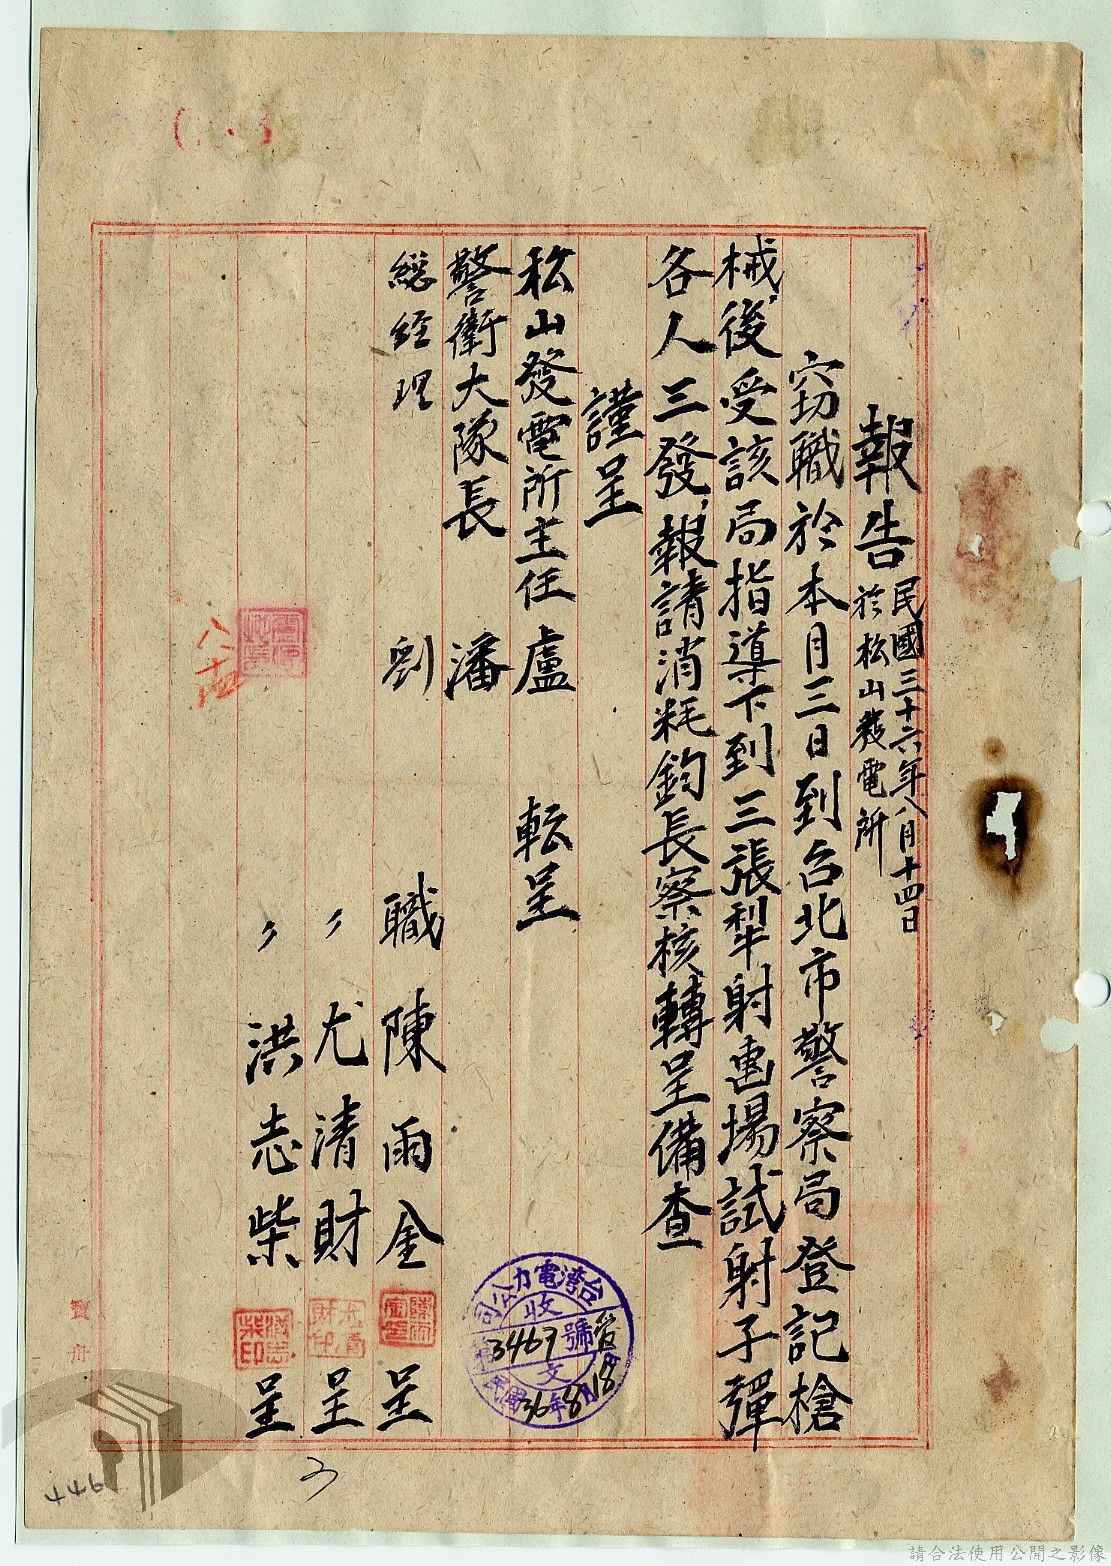 報告 民國三十六年八月十四日
於松山發電所
竊職於本月三日到台北市警察局登記槍
械,後受該局指導下到三張犁射擊場試射子彈
各人三發,報請消耗鈞長察核轉呈備查
謹呈
松山發電所主任盧 転呈
警衛大隊長 潘
總經理 劉
職陳雨金 呈
〃尤清財 呈
〃洪志柴 呈
八、十四
台灣電力公司
收文
3467號
民國36年8月18
446
請合法使用公開之影像